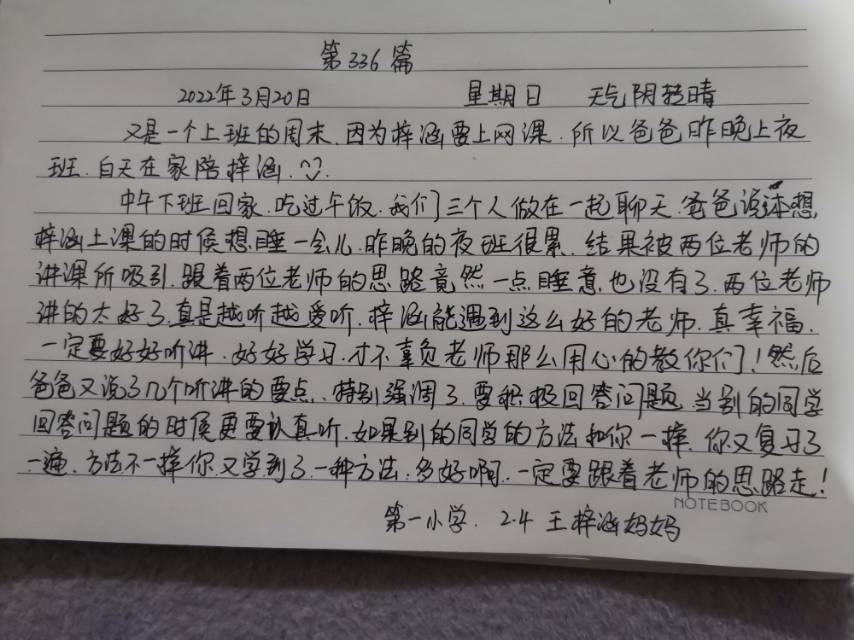 第336篇
2022年3月20日 星期日 天气阴转晴
又是一个上班的周末.因为梓涵要上网课.所以爸爸昨晚上夜
班.白天在家陪梓涵.
中午下班回家.吃过午饭.我们三个人做在一起聊天.爸爸说本想
梓涵上课的时候想睡一会儿.昨晚的夜班很累.结果被两位老师的
讲课所吸引.跟着两位老师的思路竟然一点睡意也没有了.两位老师
讲的太好了.真是越听越爱听.梓涵能遇到这么好的老师.真幸福.
一定要好好听讲.好好学习.才不辜负老师那么用心的教你们!然后
爸爸又说了几个听讲的要点.特别强调了.要积极回答问题.当别的同学
回答问题的时候更要认真听.如果别的同学的方法和你一样.你又复习了
一遍.方法不一样你又学到了一种方法.多好啊.一定要跟着老师的思路走!
NOTEBOOK
第一小学.2.4 王梓涵妈妈